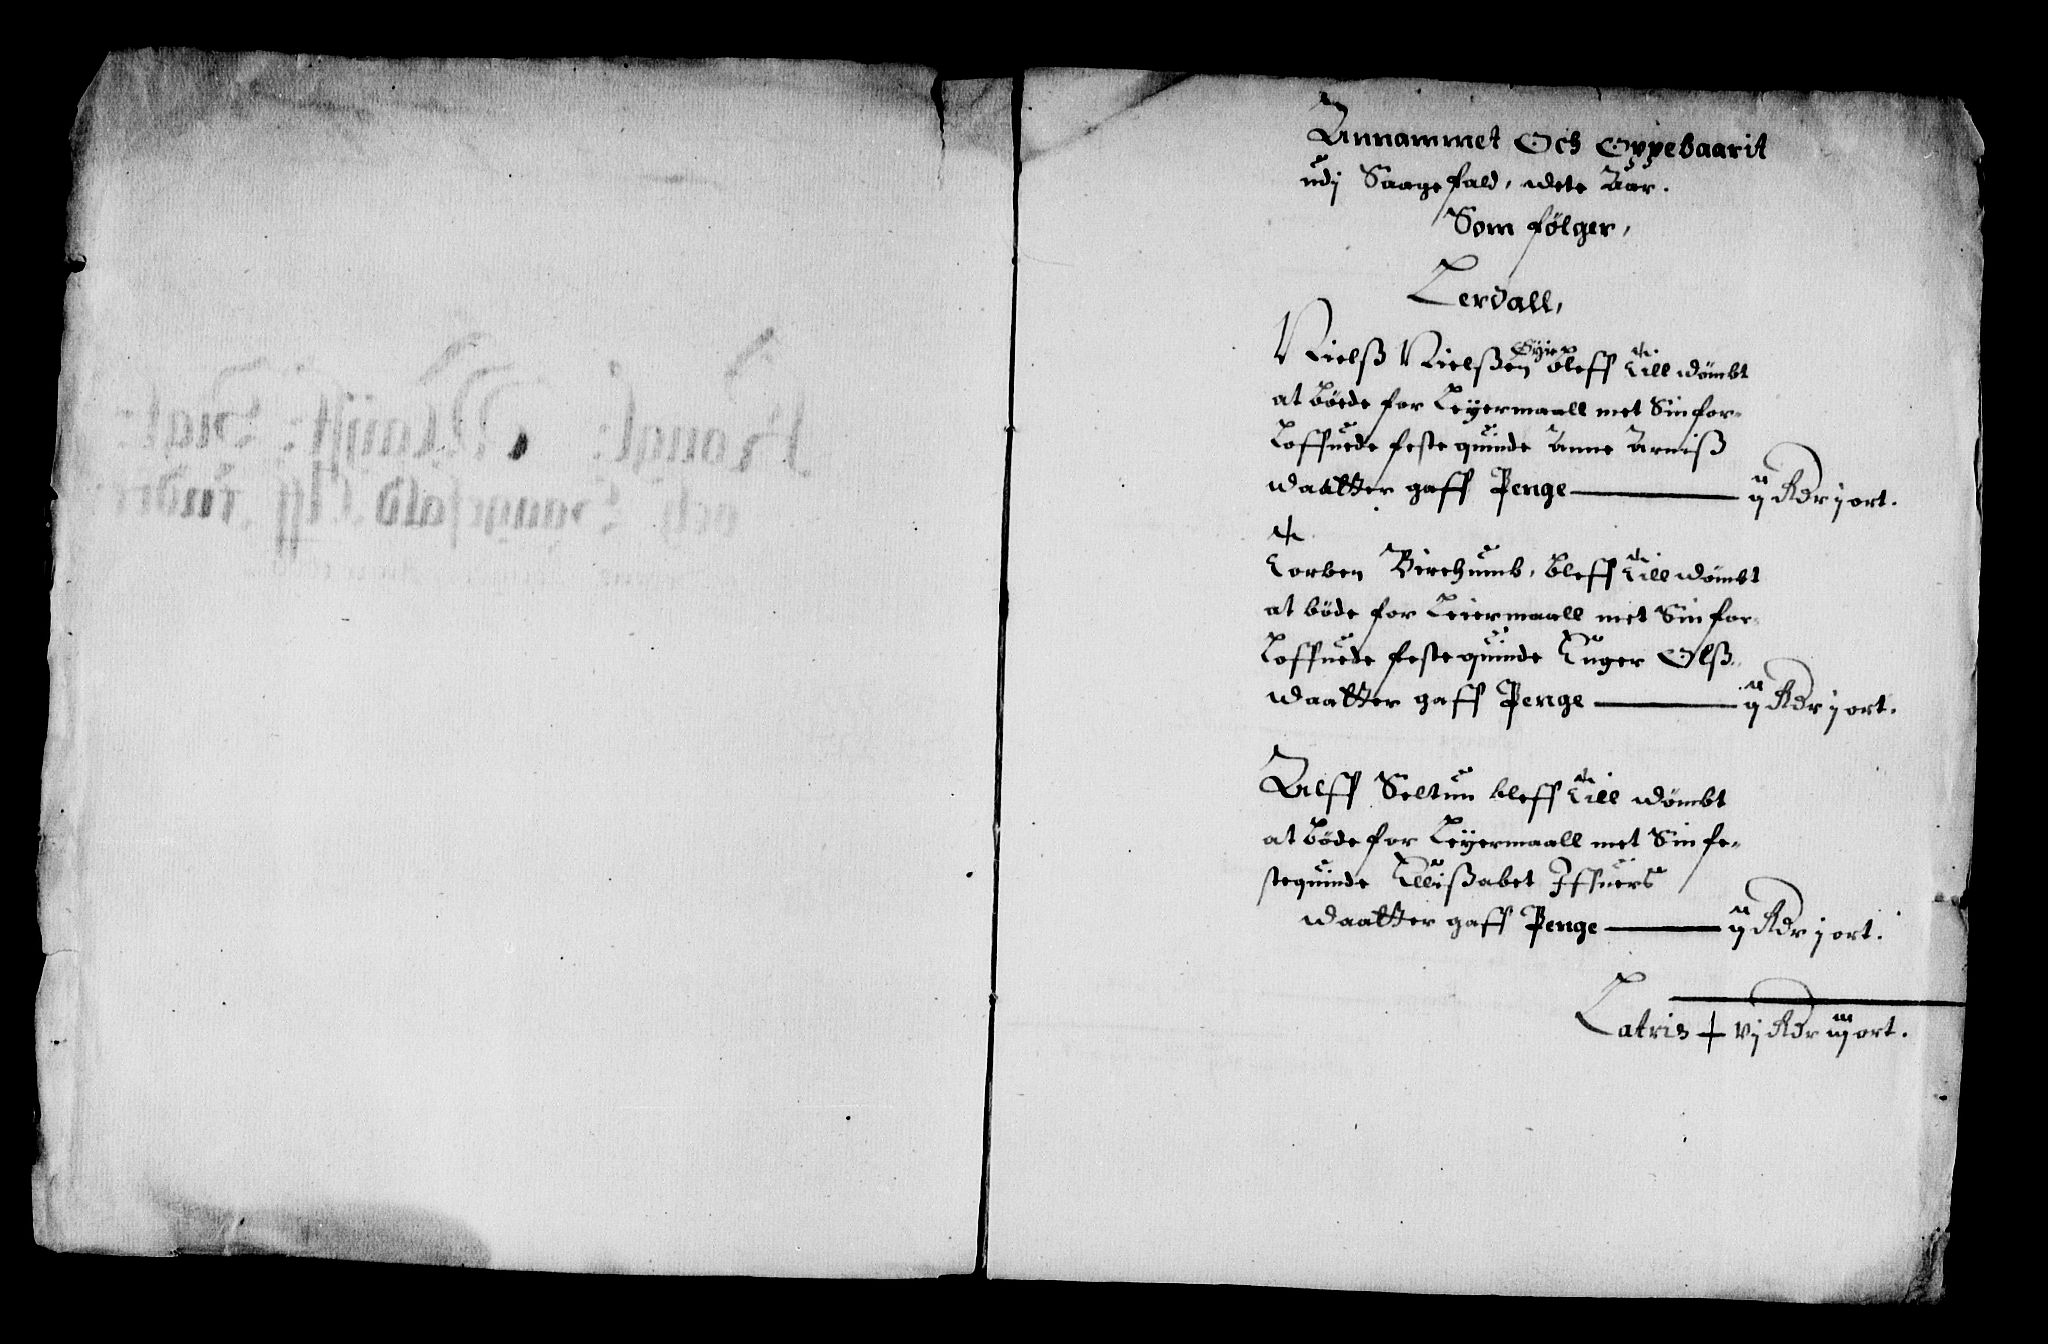 Annammet Och Oppebaarit
udj Saagefald, dete Aar.
Som følger,
Lerdall,
Nielß Nielßen bleff till dømbt
at bøede for Leyermaall met Sin for-
loffuede feste quinde Anne Arniß
daatter gaff Penge ij Rdr j ort.
Torben bleff till dømbt
at bøde for Leiermaall met Sin for-
loffuede feste quinde Inger Olß
daatter gaff Penge ij Rdr j ort.
Alff Seltun bleff till dømbt
at bøde for Leyermaall met Sin fe-
stequinde Ellißabet Iffuers
daatter gaff Penge ij Rdr j ort.
Latris + vj Rdr iij ort.